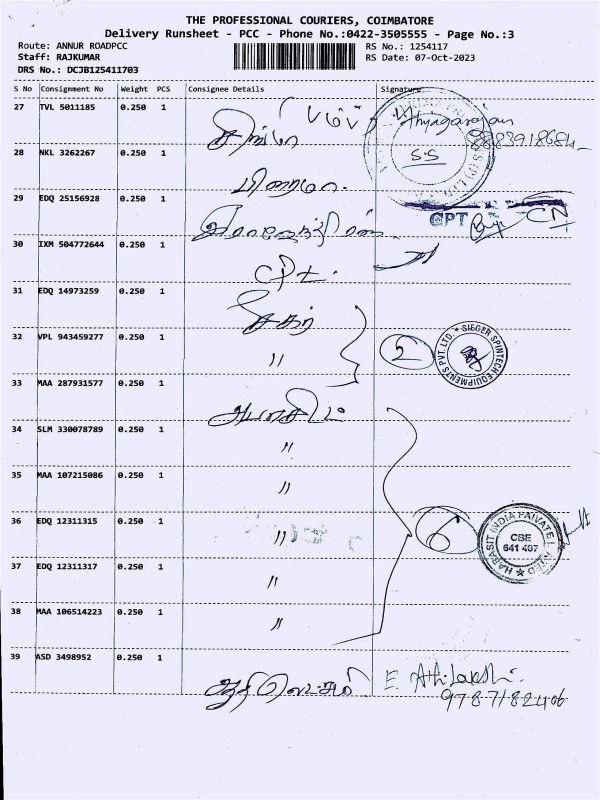 THE PROFESSIONAL COURIERS, COIMBATORE
Delivery Runsheet - PCC - Phone No.:0422-3505555 - Page No.:3
Route: ANNUR ROADPCC
Staff: RAJKUMAR
DRS No.: DCJB125411703
RS No.: 1254117
RS Date: 07-Oct-2023
S No Consignment No Weight PCS Consignee Details Signature
27 TVL 5011185 0.250 1
Thyagarajan
28 NKL 3262267 0.250 1
S.S
29 EDQ 25156928 0.250 1
CPT CN
30 IXM 504772644 0.250 1
CPT.
31 EDQ 14973259 0.250 1
32 VPL 943459277 0.250 1 "
2 SIEGER SPINTECH EQUIPMENTS PVT. LTD.
33 MAA 287931577 0.250 1
34 SLM 330078789 0.250 1 "
35 MAA 107215086 0.250 1 "
36 EDQ 12311315 0.250 1 "
6 HABASIT INDIA PRIVATE LIMITED CBE 641 407
37 EDQ 12311317 0.250 1 "
38 MAA 106514223 0.250 1 "
39 ASD 3498952 0.250 1
E. Athilakshi.
9787182406